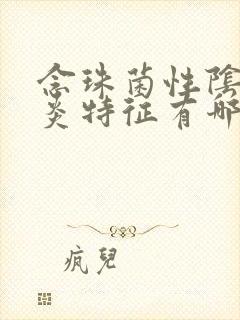 念珠菌性陰
炎特征有哪
疯兒